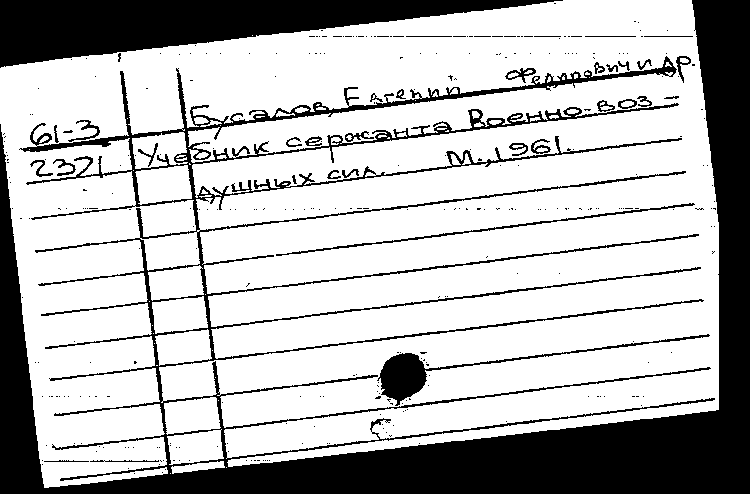 61-3 Бусалов, Евгений Федорович и др.
2371 Учебник сержанта Военно-воз-
душных сил. М., 1961.